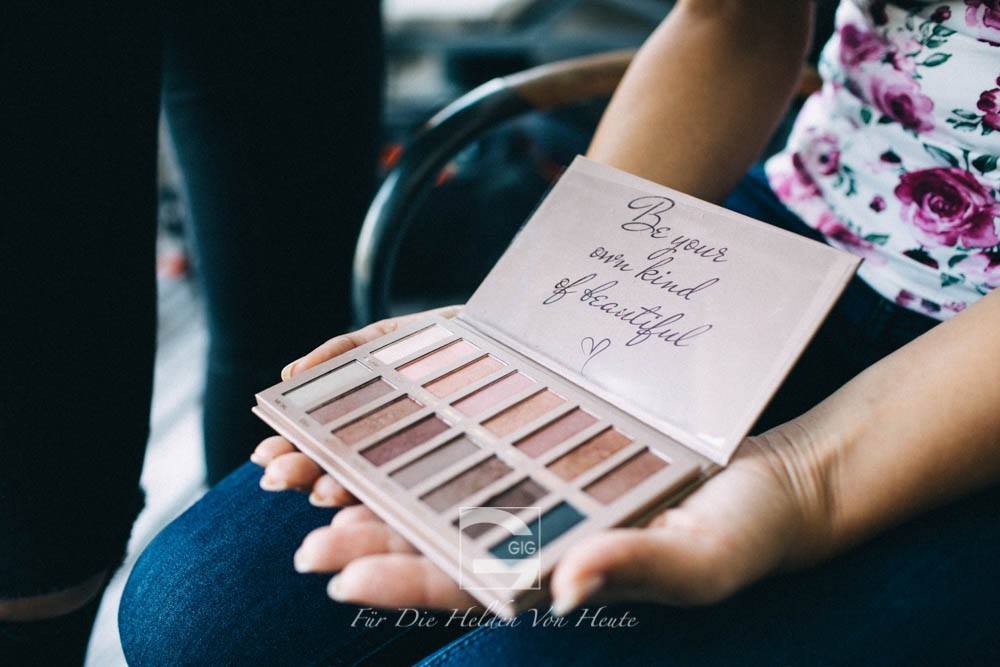 Be your
own kind
of beautiful
GIG
Für Die Helden Von Heute